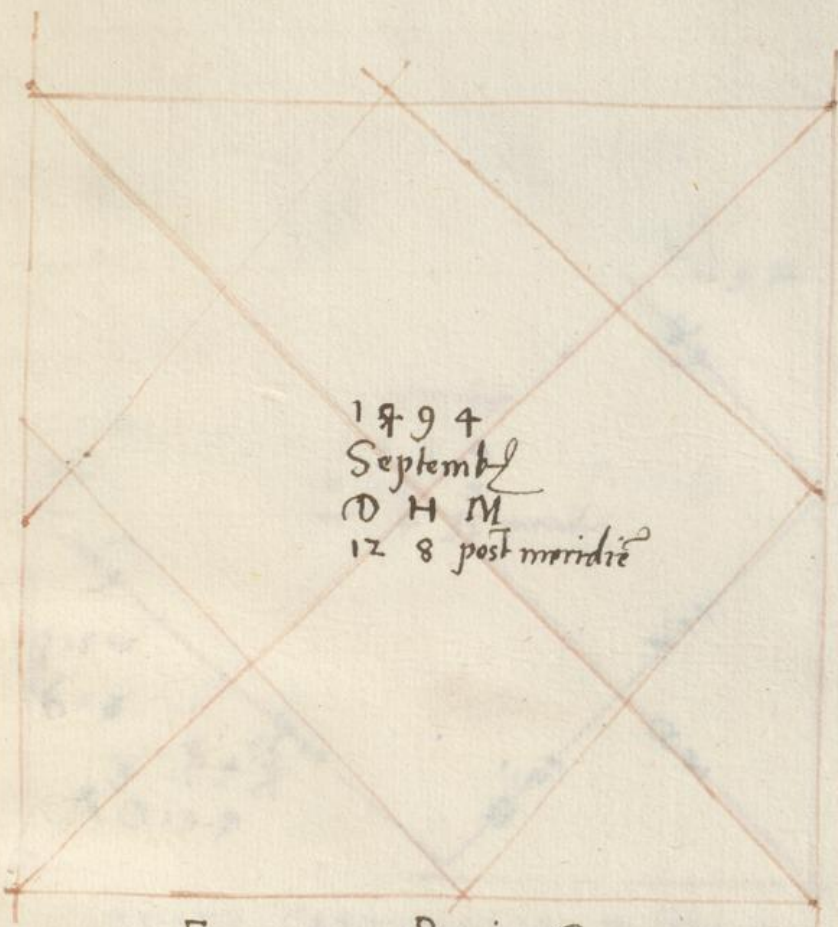 1494
Septemb
D H M
12 8 post meridiē